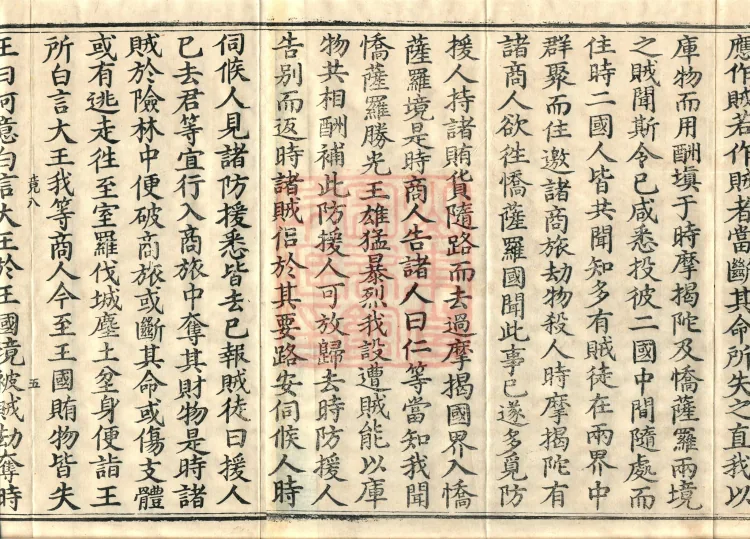 應作賊若作賊者當斷其命所失之直我以
庫物而用酬塡于時摩揭陀及憍薩羅兩境
之賊聞斯令已咸悉投彼二國中間隨處而
住時二國人皆共聞知多有賊徒在兩界中
群聚而住邀諸商旅劫物殺人時摩揭陀有
諸商人欲徃憍薩羅國聞此事已遂多覓防
援人持諸賄貨隨路而去過摩揭國界入憍
薩羅境是時商人告諸人曰仁等當知我聞
憍薩羅勝光王雄猛暴烈我設遭賊能以庫
物共相酬補此防援人可放歸去時防援人
告別而返時諸賊侣於其要路安伺候人時
伺候人見諸防援悉皆去已報賊徒曰援人
已去君等宜行入商旅中奪其財物是時諸
賊於險林中便破商旅或斷其命或傷支體
或有逃走徃至室羅伐城塵土坌身便詣王
所白言大王我等商人今至王國賄物皆失
五
王曰何意白言大王於王國境被賊劫奪時